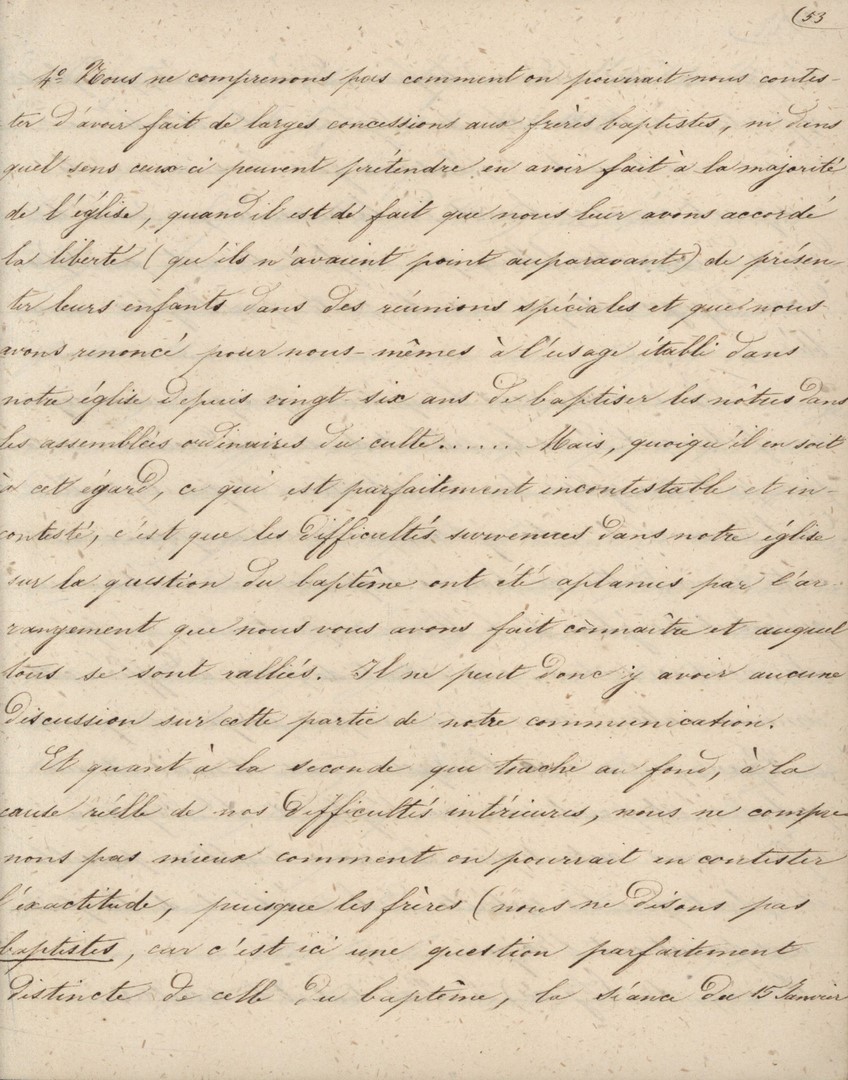 (53
4º Nous ne comprenons pas comment on pourrait nous contes-
ter d'avoir fait de larges concessions aux frères baptistes, ni dans
quel sens ceux ci peuvent prétendre en avoir fait à la majorité
de l'église, quand il est de fait que nous leur avons accordé
la liberté (qu'ils n'avaient point auparavant) de présen-
ter leurs enfants dans des réunions spéciales et que nous
avons renoncé pour nous-mêmes à l'usage établi dans
notre église depuis vingt six ans de baptiser les nôtres dans
les assemblées ordinaires du culte...... Mais, quoiqu'il en soit
à cet égard, ce qui est parfaitement incontestable et in-
contesté, c'est que les difficultés survenues dans notre église
sur la question du baptême ont été aplanies par l'ar-
rangement que nous vous avons fait connaître et auquel
tous se sont ralliés. Il ne peut donc y avoir aucune
discussion sur cette partie de notre communication.
Et quant à la seconde qui touche au fond, à la
cause réelle de nos difficultés intérieures, nous ne compre
nons pas mieux comment on pourrait en contester
l'éxactitude, puisque les frères (nous ne disons pas
baptistes, car c'est ici une question parfaitement
distincte de celle du baptême, la séance du 15 Janvier